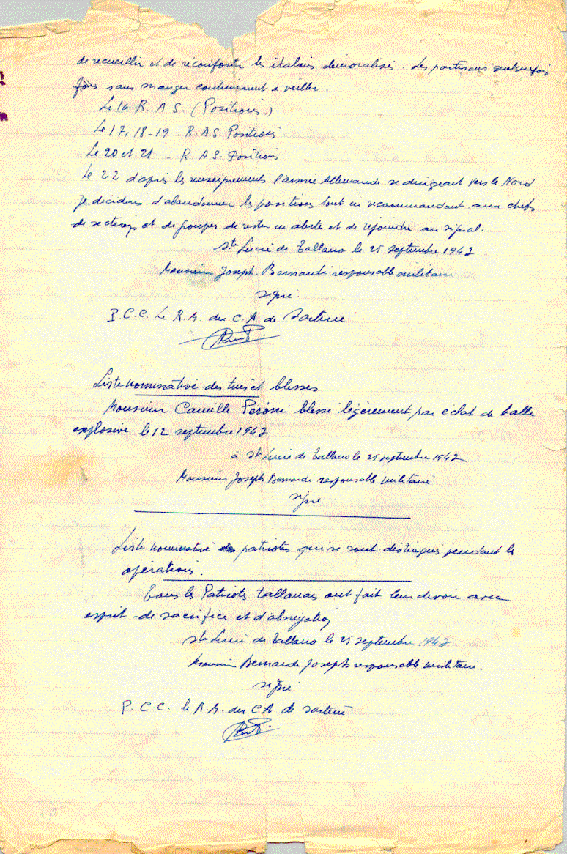 de recueillir et de réconforter les italiens démoralisés. Les partisans
fois sans manger continuèrent à veiller.
Le 16 R.A.S. (Positions)
Le 17, 18-19 - R.A.S. Positions
Le 20 et 21 - R.A.S. Positions
Le 22 d'après les renseignements l'armée Allemande se dirigeant vers le Nord
je décidai d'abandonner les positions tout en recommandant aux chefs
de secteurs et de groupes de rester en alerte et de rejoindre au signal.
Ste Lucie de Tallano le 25 septembre 1943
Mounien Joseph responsable militaire
signé
P.C.C. Le R.A. des C.A. de Sartène
Liste nominative des tués et blessés
Camille blessé légèrement par éclat de balle
explosive le 12 septembre 1943
à Ste Lucie de Tallano le 25 septembre 1943
Joseph responsable militaire
signé
Liste nominative des patriotes qui se sont distingués pendant les
opérations.
Tous les Patriotes Tallanais ont fait leur devoir avec
esprit de sacrifice et d'abnégation
Ste Lucie de Tallano le 25 septembre 1943
Joseph responsable militaire.
signé
P.C.C. le R.A. des C.A. de Sartène